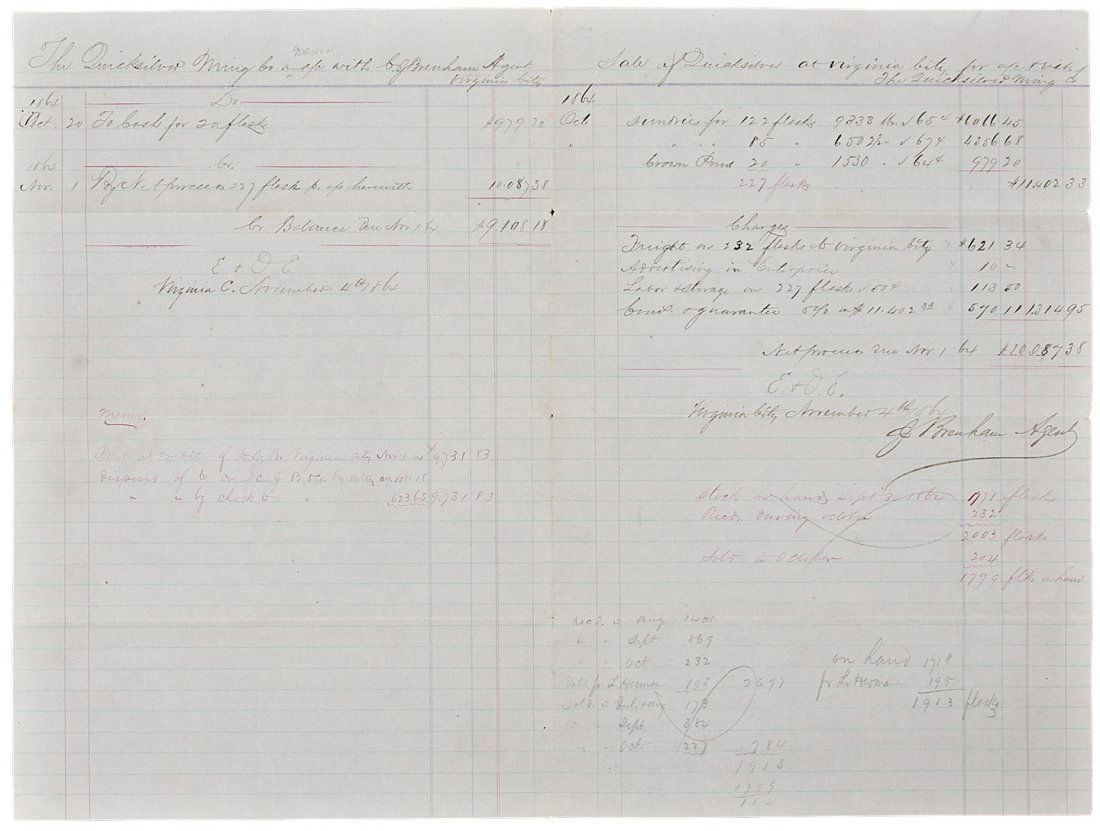 The Quicksilver Mining Co in a/c with C J Brenham Agent
Virginia City
1864 Dr
Oct. 20 To Cash for 20 flasks $979 20
1864 Cr.
Nov. 1 By Net proceeds 227 flasks p. a/c herewith 10.087.38
Cr. Balance due Nov. 1 64 $9.108 18
E. & O. E.
Virginia C. November 4th 1864
Memo.
Amt at credit of C. J. B. Virginia City Nov 1 64 $9731 83
Disposed of
" " by check 9.731.83
Sale of Quicksilver at Virginia City for a/c & risk
The Quicksilver Mining Co
1864
Oct. Sundries for 122 flasks 9333 lbs 65¢ $6066 45
" " " 85 " 6502½ " 67¢ 4356 68
Crown Point 20 " 1530 " 64¢ 979 20
227 flasks $11.402 33
Charges
Freight on 232 flasks to Virginia City $621 34
Advertising in Enterprise 10 -
Labor & storage on 227 flasks 50¢ 113 50
Coms. & guarantee 5% on $11.402 33 570 11 1314 95
Net proceeds due Nov. 1 64 $10.087 38
E. & O. E.
Virginia City November 4th 1864
C J Brenham Agent
Stock on hand Sept 30 1864 1771 flasks
Recd. during October 232
2003 flasks
Sold in October 204
1799 flsks on hand
Recd. in Aug. 1401
" " Sept 869
" " Oct 232
L. Herman 195 2697
Sold in 173
" " Sept 384
" " Oct. 227 784
1913
1799
114
on hand 1718
fr L. Herman 195
1913 flasks